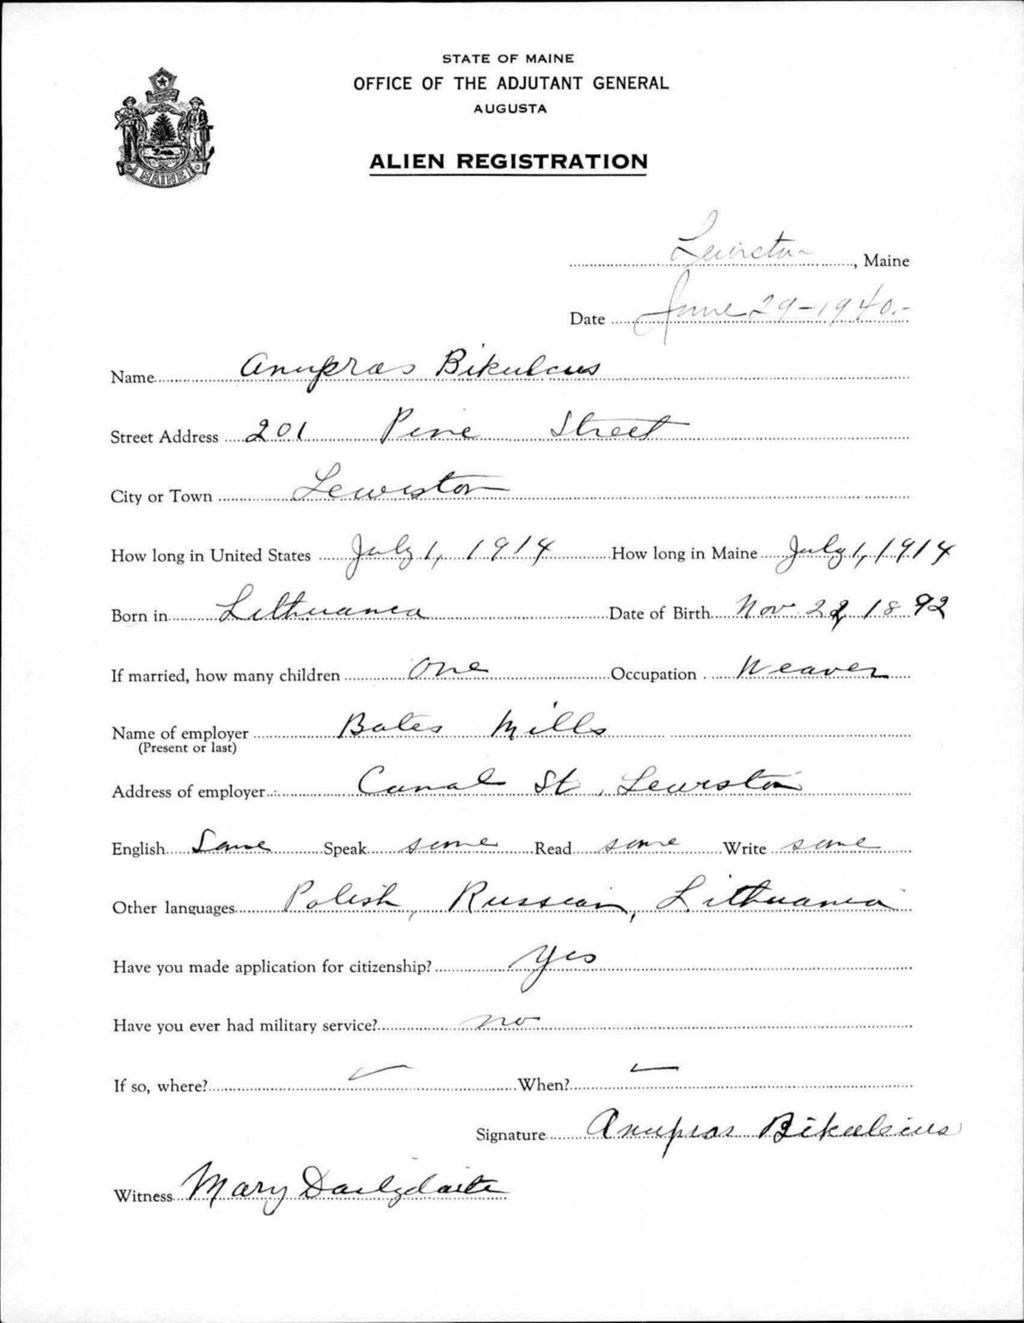 STATE OF MAINE
OFFICE OF THE ADJUTANT GENERAL
AUGUSTA
ALIEN REGISTRATION
MAINE
Lewiston, Maine
Date June 29-1940.-
Name Anupras Bikulcius
Street Address 201 Pine Street
City or Town Lewiston
How long in United States July 1, 1914 How long in Maine July 1, 1914
Born in Lithuania Date of Birth Nov 22, 1892
If married, how many children One Occupation Weaver
Name of employer Bates Mills
(Present or last)
Address of employer Canal St, Lewiston
English Some Speak some Read some Write some
Other languages Polish, Russian, Lithuania
Have you made application for citizenship? Yes
Have you ever had military service? no
If so, where? When?
Signature Anupras Bikulcius
Witness Mary